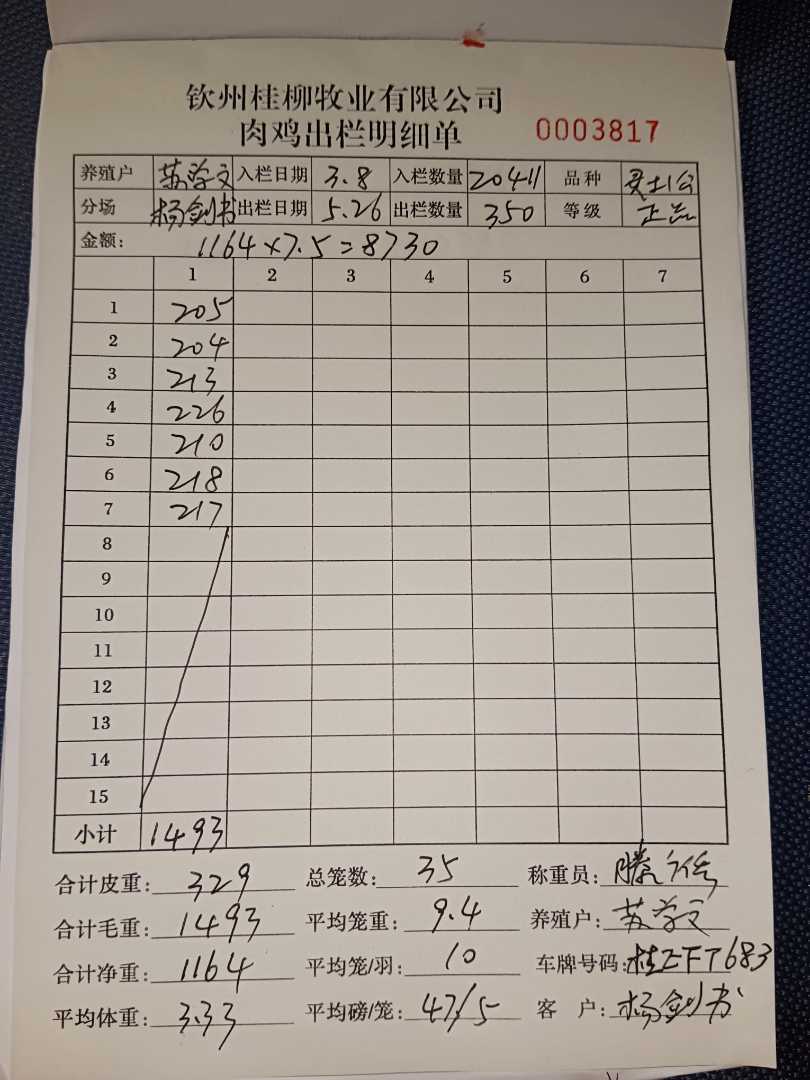 钦州桂柳牧业有限公司
肉鸡出栏明细单 0003817
养殖户 苏学文 入栏日期 3.8 入栏数量 20411 品种 灵土1公
分场 杨剑书 出栏日期 5.26 出栏数量 350 等级 正品
金额: 1164×7.5=8730
1 2 3 4 5 6 7
1 205
2 204
3 213
4 226
5 210
6 218
7 217
8
9
10
11
12
13
14
15
小计 1493
合计皮重: 329 总笼数: 35 称重员:
合计毛重: 1493 平均笼重: 9.4 养殖户: 苏学文
合计净重: 1164 平均笼/羽: 10 车牌号码:
平均体重: 3.33 平均磅/笼: 47/5 客户: 杨剑书